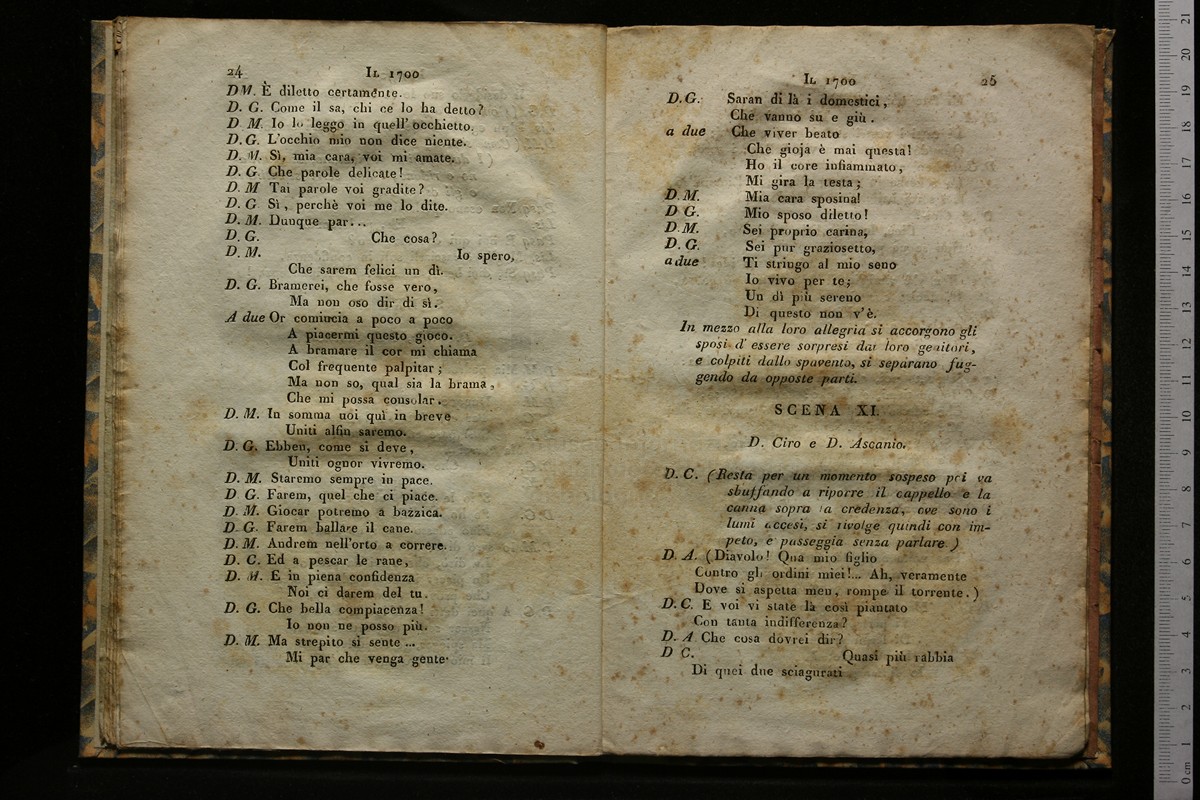 24 Il 1700
DM. È diletto certamente.
D. G. Come il sa, chi ce lo ha detto?
D. M. Io lo leggo in quell' occhietto.
D. G. L'occhio mio non dice niente.
D. M. Sì, mia cara, voi mi amate.
D. G. Che parole delicate!
D. M Tai parole voi gradite?
D. G Sì, perchè voi me lo dite.
D. M. Dunque par...
D. G. Che cosa?
D. M. Io spero,
Che sarem felici un dì.
D. G. Bramerei, che fosse vero,
Ma non oso dir di sì.
A due Or comincia a poco a poco
A piacermi questo gioco.
A bramare il cor mi chiama
Col frequente palpitar;
Ma non so, qual sia la brama,
Che mi possa consolar.
D. M. In somma noi quì in breve
Uniti alfin saremo.
D. G. Ebben, come si deve,
Uniti ognor vivremo.
D. M. Staremo sempre in pace.
D G. Farem, quel che ci piace.
D. M. Giocar potremo a bazzica.
D. G. Farem ballare il cane.
D. M. Andrem nell'orto a correre.
D. C. Ed a pescar le rane,
D. M. E in piena confidenza
Noi ci darem del tu.
D. G. Che bella compiacenza!
Io non ne posso più.
D. M. Ma strepito si sente ...
Mi par che venga gente.
Il 1700 25
D. G. Saran di là i domestici,
Che vanno su e giù.
a due Che viver beato
Che gioja è mai questa!
Ho il core infiammato,
Mi gira la testa;
D. M. Mia cara sposina!
D G. Mio sposo diletto!
D. M. Sei proprio carina,
D. G. Sei pur graziosetto,
a due Ti stringo al mio seno
Io vivo per te;
Un dì più sereno
Di questo non v'è.
In mezzo alla loro allegria si accorgono gli
sposi d' essere sorpresi dai loro genitori,
e colpiti dallo spavento, si separano fug-
gendo da opposte parti.
SCENA XI.
D. Ciro e D. Ascanio.
D. C. (Resta per un momento sospeso poi va
sbuffando a riporre il cappello e la
canna sopra la credenza, ove sono i
lumi accesi, si rivolge quindi con im-
peto, e passeggia senza parlare.)
D. A. (Diavolo! Qua mio figlio
Contro gli ordini miei!... Ah, veramente
Dove si aspetta men, rompe il torrente.)
D. C. E voi vi state là così piantato
Con tanta indifferenza?
D. A Che cosa dovrei dir?
D C. Quasi più rabbia
Di quei due sciagurati
21 20 19 18 17 16 15 14 13 12 11 10 9 8 7 6 5 4 3 2 1 0 cm